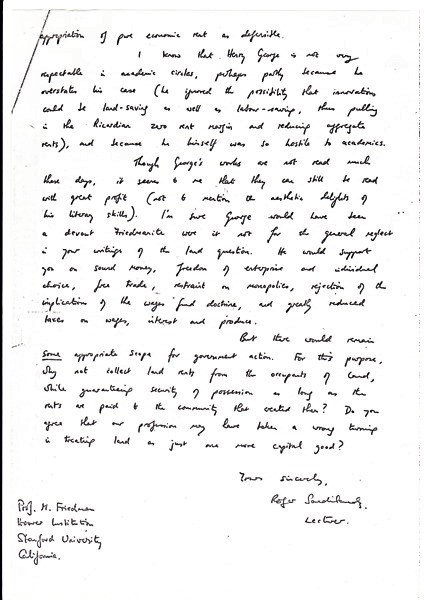 appropriation of pure economic rent as defensible.
I know that Henry George is not very
respectable in academic circles, perhaps partly because he
overstates his case (he ignored the possibility that innovations
could be land-saving as well as labour-saving, thus pulling
in the Ricardian zero rent margin and reducing aggregate
rents), and because he himself was so hostile to academics.
Though George's works are not read much
these days, it seems to me that they can still be read
with great profit (not to mention the aesthetic delights of
his literary skills). I'm sure George would have been
a devout Friedmanite were it not for the general neglect
in your writings of the land question. He would support
you on sound money, freedom of enterprise and individual
choice, free trade, restraint on monopolies, rejection of the
implications of the wages fund doctrine, and greatly reduced
taxes on wages, interest and produce.
But there would remain
some appropriate scope for government action. For this purpose,
why not collect land rents from the occupants of land,
while guaranteeing security of possession as long as the
rents are paid to the community that created them? Do you
agree that our profession may have taken a wrong turning
in treating land as just one more capital good?
Yours sincerely,
Roger Sandilands,
Lecturer.
Prof. M. Friedman
Hoover Institution
Stanford University
California.